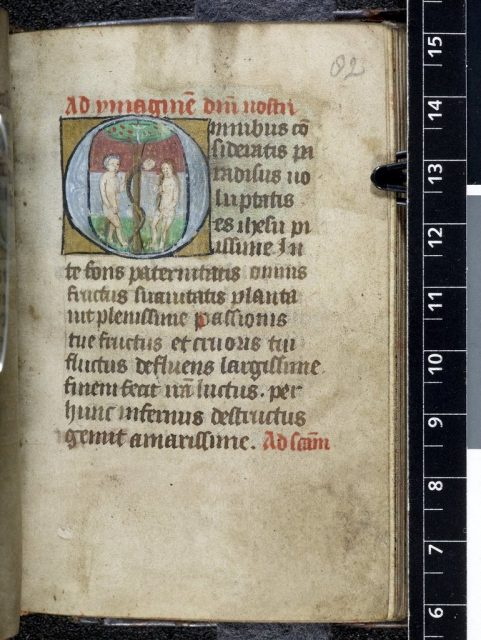 82
Ad ymaginē dn̄i nostri
Omnibus cō
sideratis pa
radisus uo
luptatis
es ihesu pi
issime In
te fons paternitatis omnis
fructus suauitatis planta
uit plenissime passionis
tue fructus et cruoris tui
fluctus defluens largissime
finem fecit nr̄i luctus. per
hunc infernus destructus
gemit amarissime. Ad scām
15
14
13
12
11
10
9
8
7
6